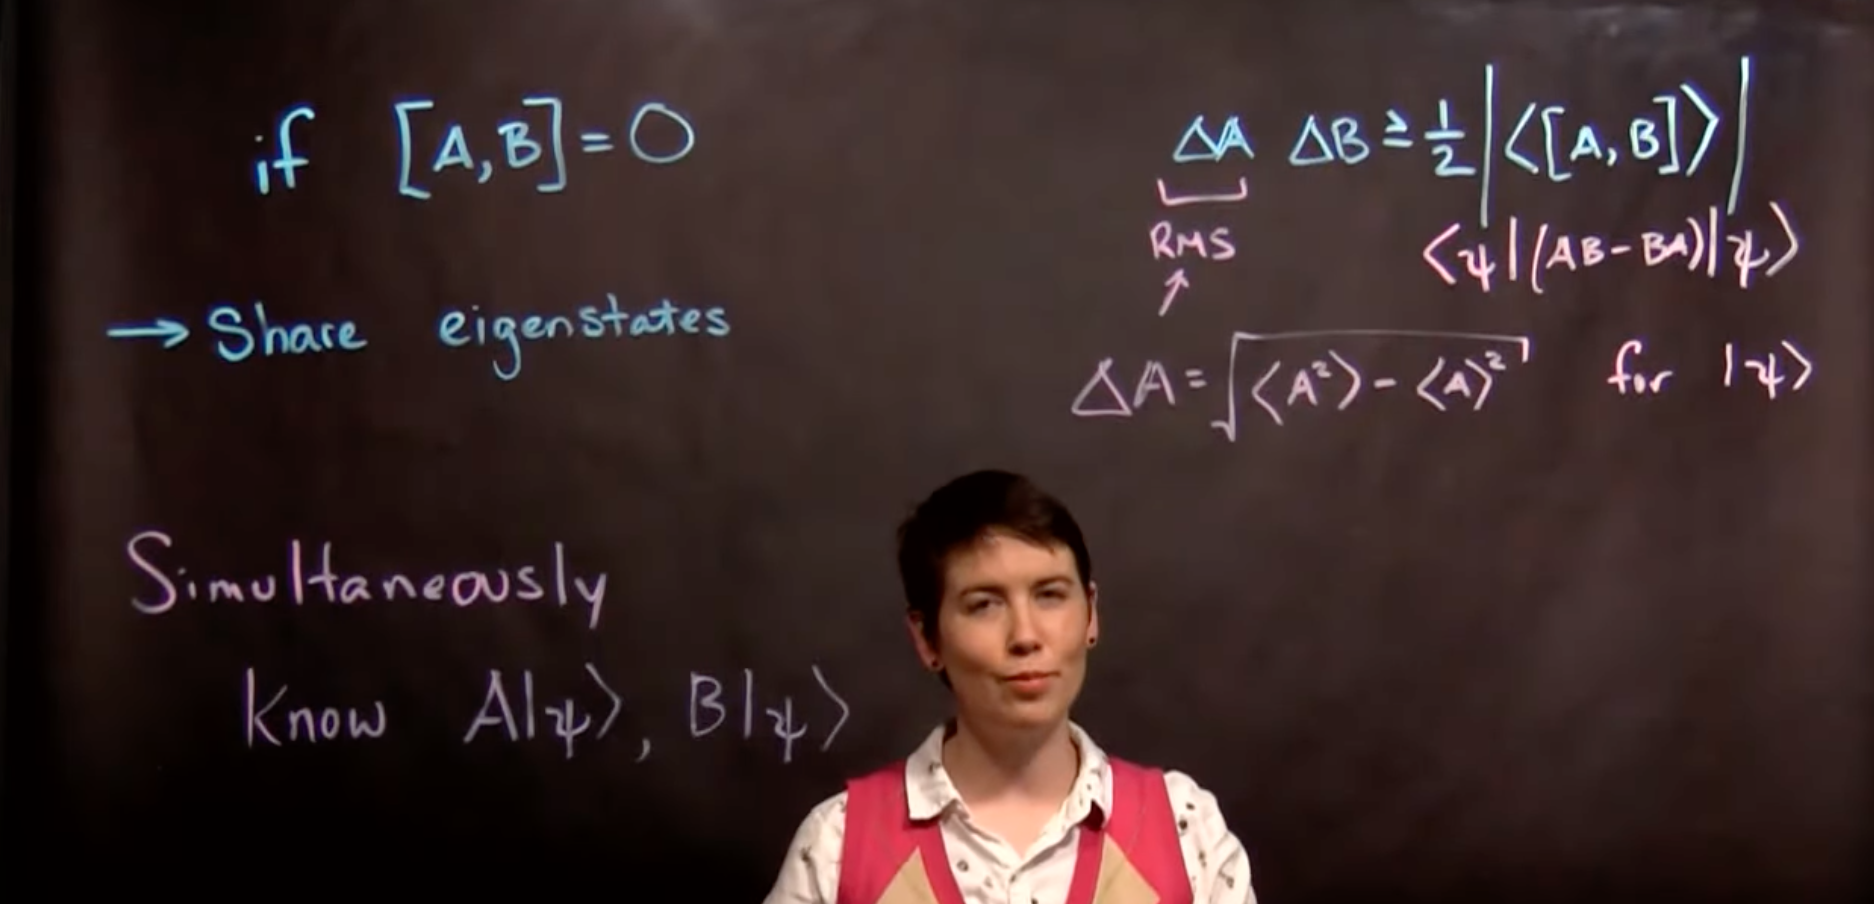 if [A,B]=0
→ Share eigenstates
Simultaneously
know A|ψ⟩, B|ψ⟩
ΔA ΔB ≥ 1/2 |⟨[A,B]⟩|
RMS
⟨ψ|(AB-BA)|ψ⟩
↑
ΔA = √(⟨A²⟩-⟨A⟩²) for |ψ⟩